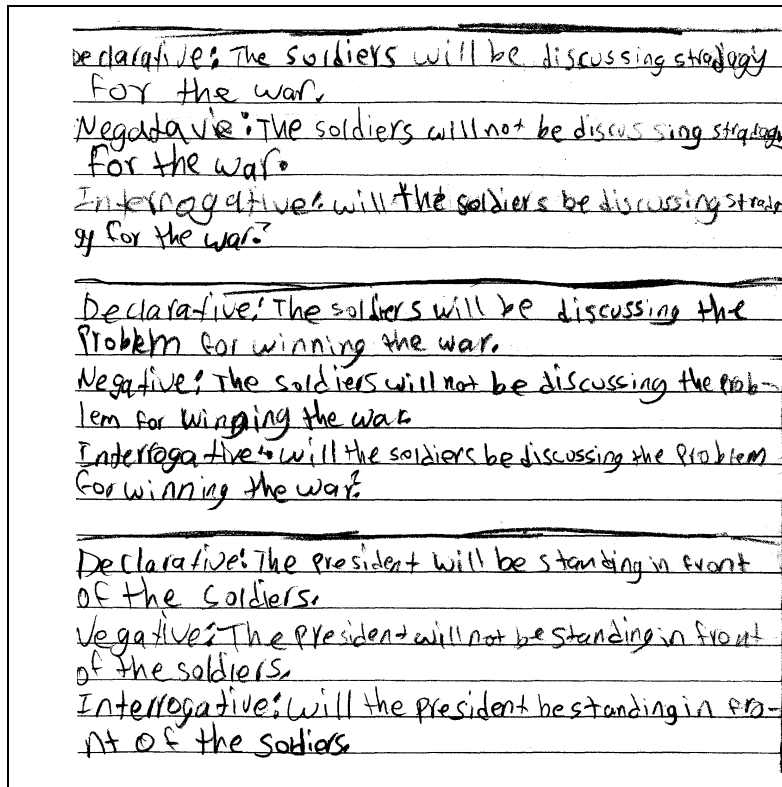 Declarative: The soldiers will be discussing stradagy
for the war.
Negatavie: The soldiers will not be discussing stradagy
for the war.
Interrogative: will the soldiers be discussing strada
gy for the war?
Declarative: The soldiers will be discussing the
Problem for winning the war.
Negative: The soldiers will not be discussing the prob-
lem for winging the war.
Interrogative: will the soldiers be discussing the Problem
for winning the war?
Declarative: The president will be standing in front
of the soldiers.
Negative: The president will not be standing in front
of the soldiers.
Interrogative: will the president be standing in fro-
nt of the soldiers.